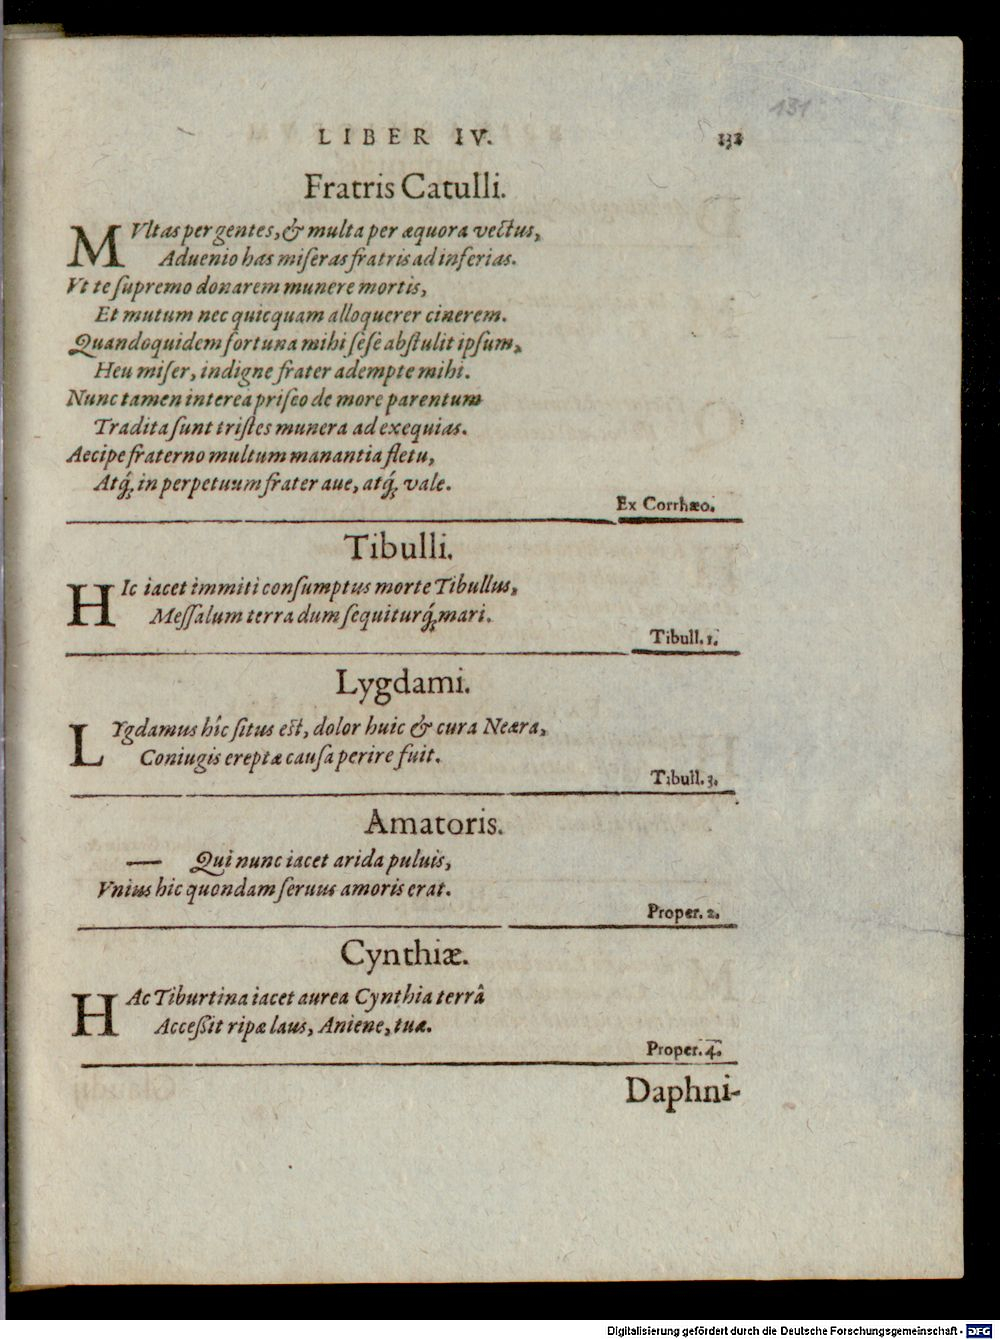 131
LIBER IV. 132
Fratris Catulli.
MVltas per gentes, & multa per æquora vectus,
Aduenio has miseras fratris ad inferias.
Vt te supremo donarem munere mortis,
Et mutum nec quicquam alloquerer cinerem.
Quandoquidem fortuna mihi sese abstulit ipsum,
Heu miser, indigne frater adempte mihi.
Nunc tamen intereà prisco de more parentum
Tradita sunt tristes munera ad exequias.
Aecipe fraterno multum manantia fletu,
Atq́; in perpetuum frater aue, atq́; vale.
Ex Corrhæo.
Tibulli.
HIc iacet immiti consumptus morte Tibullus,
Messalum terra dum sequiturq́; mari.
Tibull. 1.
Lygdami.
LYgdamus hîc situs est, dolor huic & cura Neæra,
Coniugis ereptæ causa perire fuit.
Tibull. 3.
Amatoris.
— Qui nunc iacet arida puluis,
Vnius hic quondam seruus amoris erat.
Proper. 2.
Cynthiæ.
HAc Tiburtina iacet aurea Cynthia terrâ
Accessit ripæ laus, Aniene, tuæ.
Proper. 4.
Daphni-
Digitalisierung gefördert durch die Deutsche Forschungsgemeinschaft - DFG